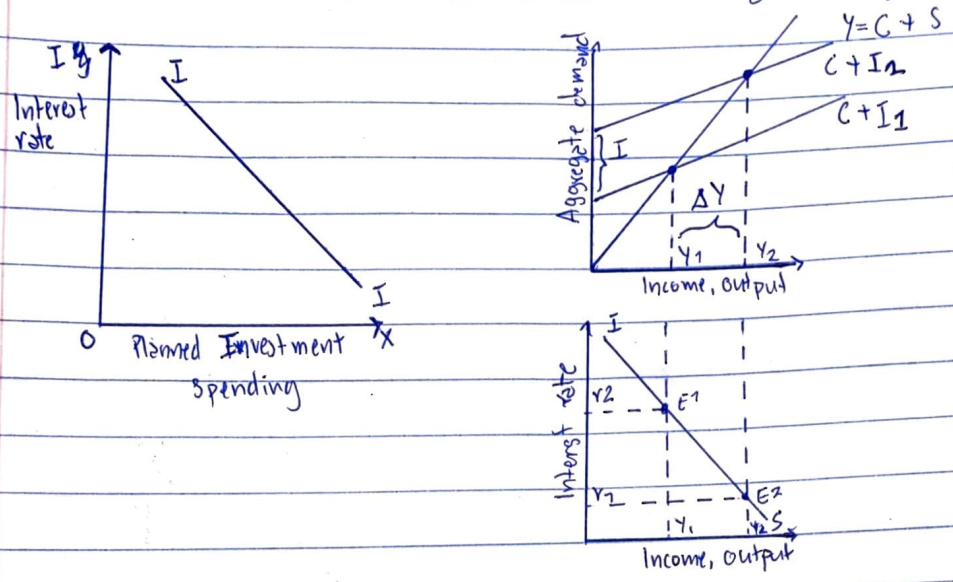 I
Interest
rate
I
I
O
X
Planned Investment
Spending
Aggregate demand
Y=C+S
C+I2
C+I1
I
ΔY
Y1
Y2
Income, output
Interst rate
I
r2
E1
E2
Y1
Y2
S
Income, output